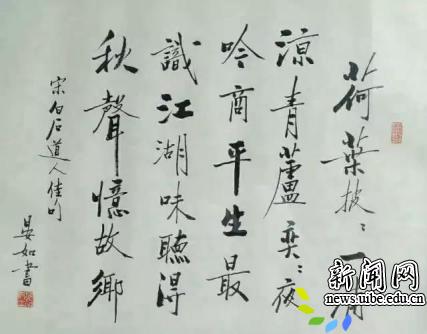 荷葉披〻一浦
涼青蘆奕〻夜
吟商平生最
識江湖味聽得
秋聲憶故鄉
宋白石道人佳句
晏如書
新闻网
www.uibe.edu.cn